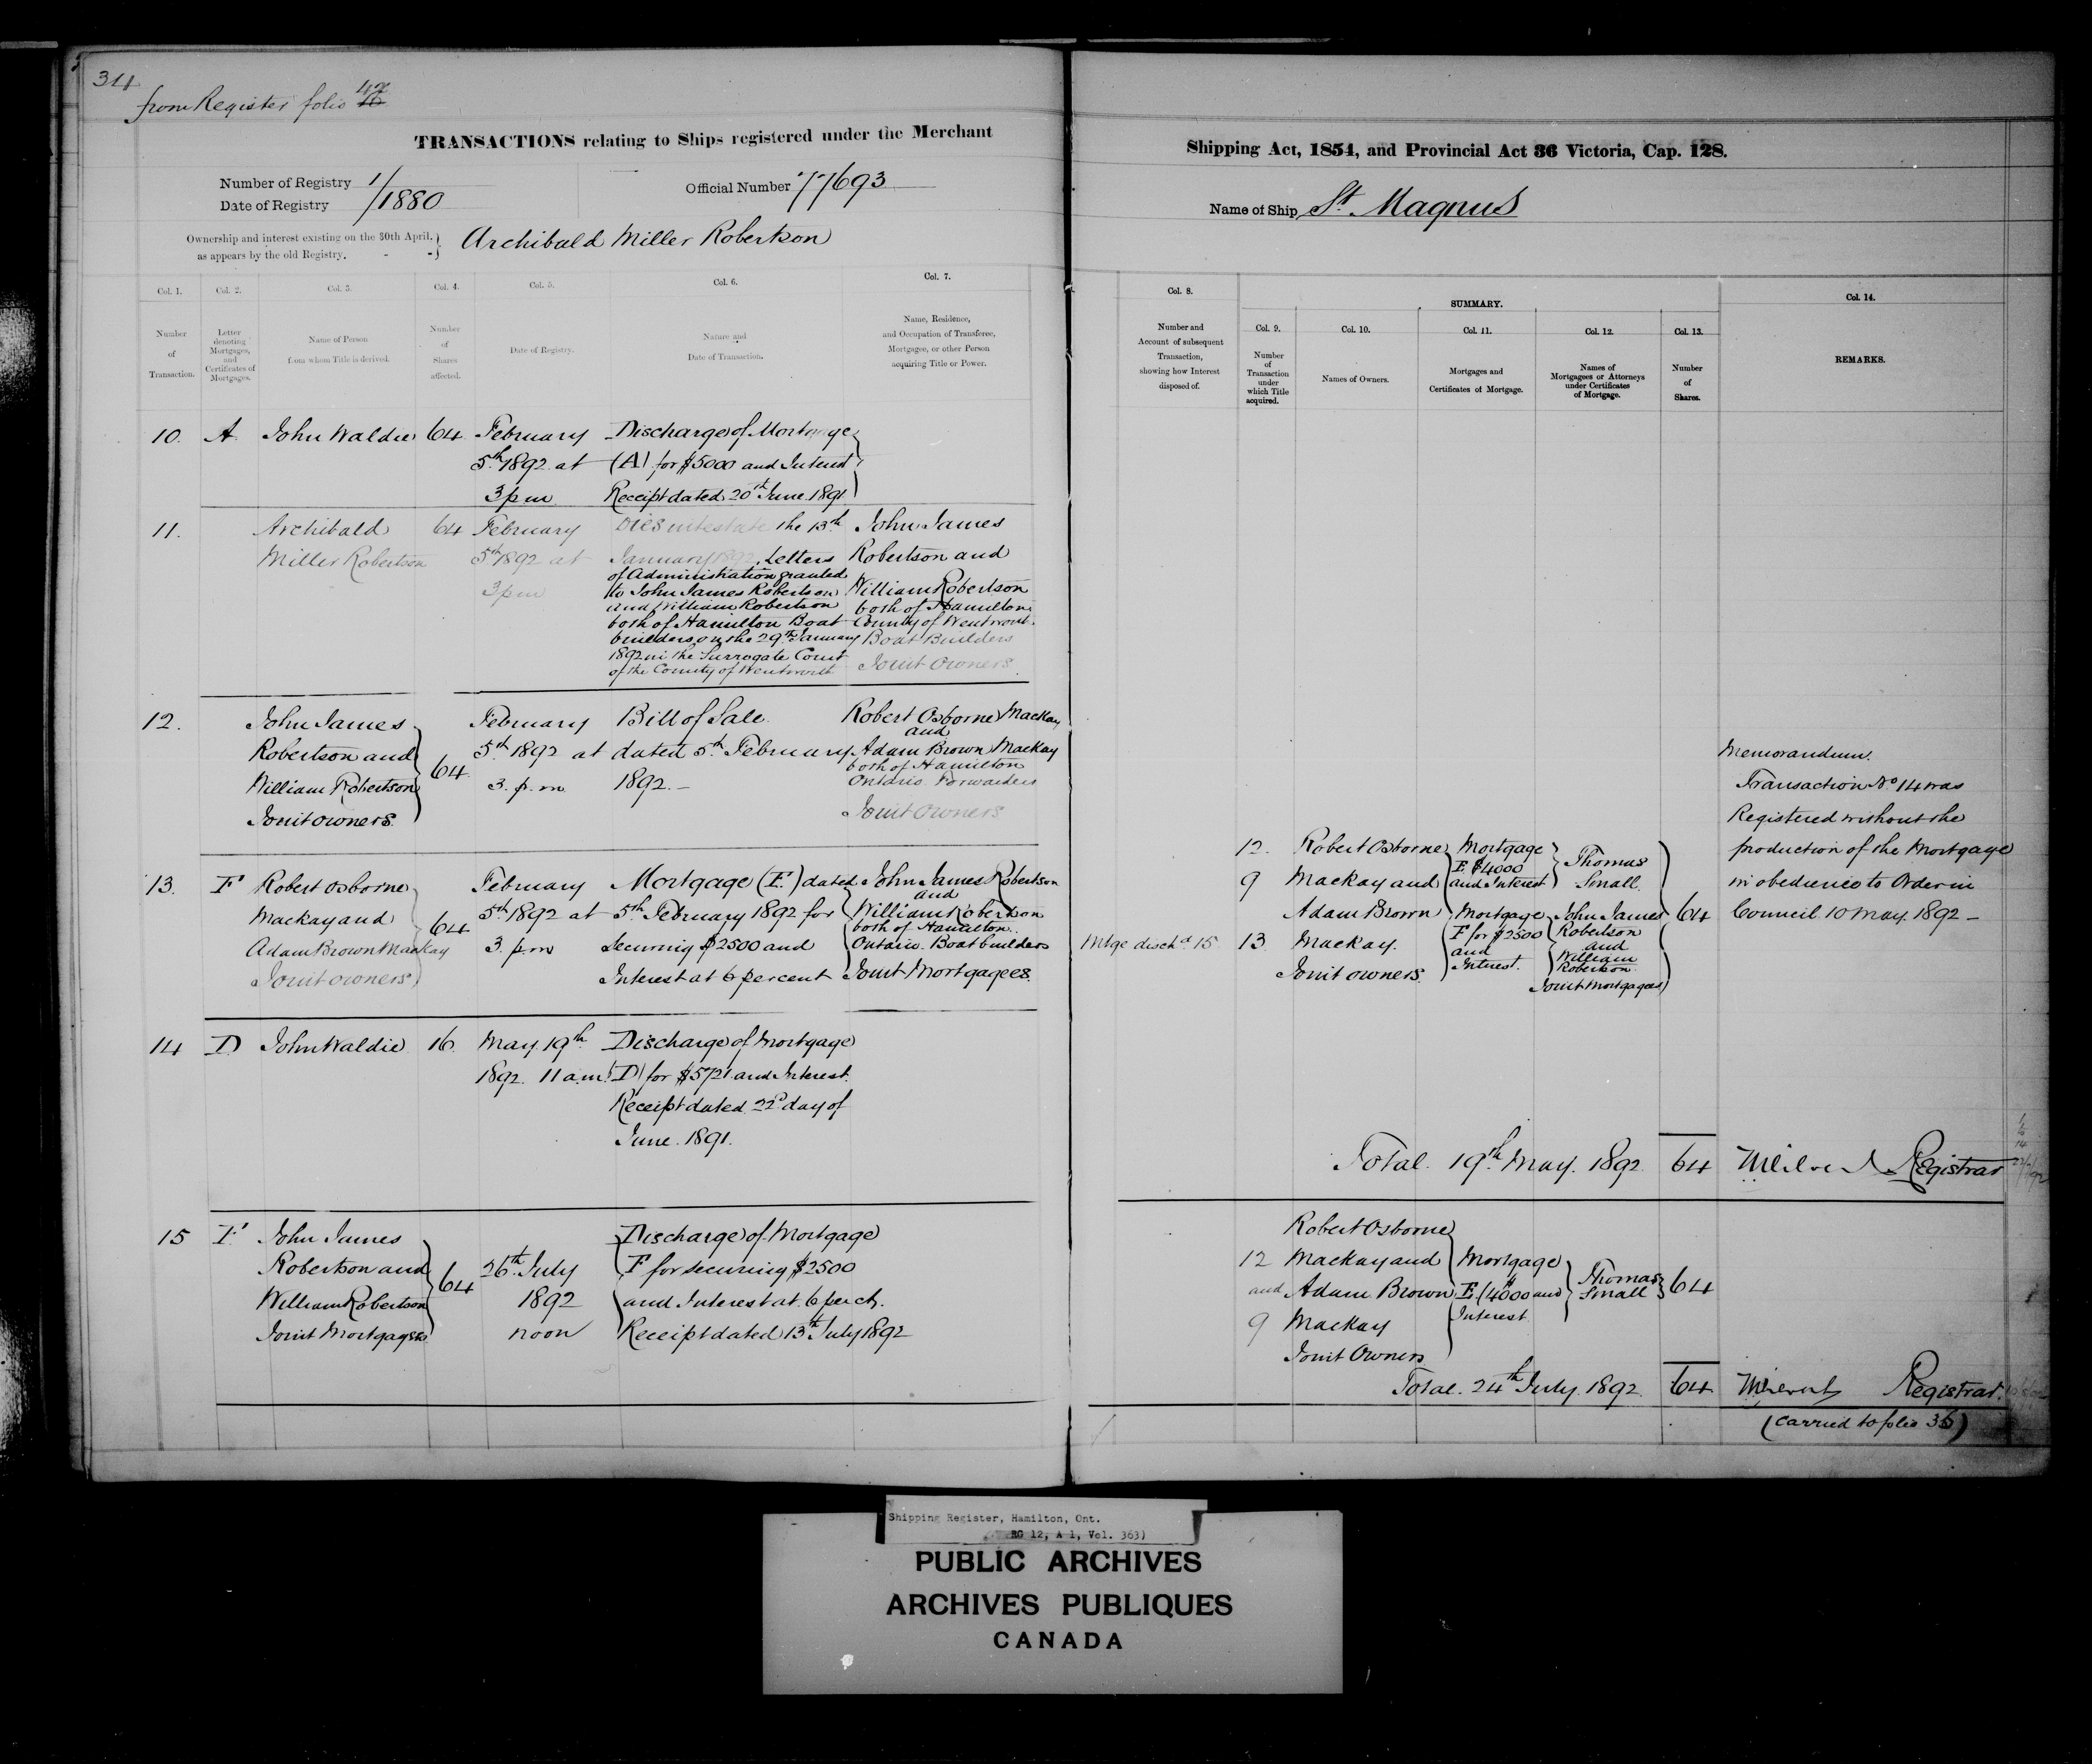 34
from Register folio 42
TRANSACTIONS relating to Ships registered under the Merchant
Shipping Act, 1854, and Provincial Act 36 Victoria, Cap. 128.
Number of Registry 1/1880
Date of Registry
Official Number 77693
Name of Ship St. Magnus
Ownership and interest existing on the 30th April,
as appears by the old Registry. - -
Archibald Miller Robertson
Col. 1.
Number
of
Transaction.
Col. 2.
Letter
denoting
Mortgages,
and
Certificates of
Mortgages.
Col. 3.
Name of Person
from whom Title is derived.
Col. 4.
Number
of
Shares
affected.
Col. 5.
Date of Registry.
Col. 6.
Nature and
Date of Transaction.
Col. 7.
Name, Residence,
and Occupation of Transferee,
Mortgagee, or other Person
acquiring Title or Power.
Col. 8.
Number and
Account of subsequent
Transaction,
showing how Interest
disposed of.
SUMMARY.
Col. 9.
Number
of
Transaction
under
which Title
acquired.
Col. 10.
Names of Owners.
Col. 11.
Mortgages and
Certificates of Mortgage.
Col. 12.
Names of
Mortgagees or Attorneys
under Certificates
of Mortgage.
Col. 13.
Number
of
Shares.
Col. 14.
REMARKS.
10. A John Waldie 64
February
5th 1892 at
3 pm
Discharge of Mortgage
(A) for $5000 and Interest
Receipt dated 20th June 1891
11.
Archibald
Miller Robertson
64
February
5th 1892 at
3 pm
Dies intestate the 13th
January 1892, Letters
of Administration granted
to John James Robertson
and William Robertson
both of Hamilton Boat
builders on the 29th January
1892 in the Surrogate Court
of the County of Wentworth
John James
Robertson and
William Robertson
both of Hamilton
County of Wentworth
Boat Builders
Joint Owners
12.
John James
Robertson and
William Robertson
Joint owners.
64
February
5th 1892 at
3. p.m
Bill of Sale
dated 5th February
1892. –
Robert Osborne Mackay
and
Adam Brown Mackay
both of Hamilton
Ontario Forwarders
Joint Owners
13. F
Robert Osborne
Mackay and
Adam Brown Mackay
Joint owners
64
February
5th 1892 at
3. p.m
Mortgage (F.) dated
5th February 1892 for
securing $2500 and
Interest at 6 percent
John James Robertson
and
William Robertson
both of Hamilton
Ontario. Boat builders
Joint Mortgagees.
14 D John Waldie 16.
May 19th
1892. 11 am
Discharge of Mortgage
(D) for $5721 and Interest.
Receipt dated 22d day of
June. 1891.
15 F
John James
Robertson and
William Robertson
Joint Mortgagees
64
26th July
1892
noon
Discharge of Mortgage
F for securing $2500
and Interest at 6 per ct.
Receipt dated 13th July 1892
Mtge dischd 15
12.
9
13
Robert Osborne
Mackay and
Adam Brown
Mackay.
Joint owners.
Mortgage
E $4000
and Interest
Mortgage
F for $2500
and
Interest.
Thomas
Small.
John James
Robertson
and
William
Robertson
Joint Mortgagees
64
Memorandum.
Transaction No. 14 was
Registered without the
production of the Mortgage
in obedience to Order in
Council 10 May. 1892 –
Total. 19th May. 1892. 64
Registrar
12
and
9
Robert Osborne
Mackay and
Adam Brown
Mackay
Joint Owners
Mortgage
E. ($4000 and
Interest
Thomas
Small
64
Total. 24th July. 1892. 64
Registrar.
(carried to folio 36)
Shipping Register, Hamilton, Ont.
RG 12, A 1, Vol. 363)
PUBLIC ARCHIVES
ARCHIVES PUBLIQUES
CANADA